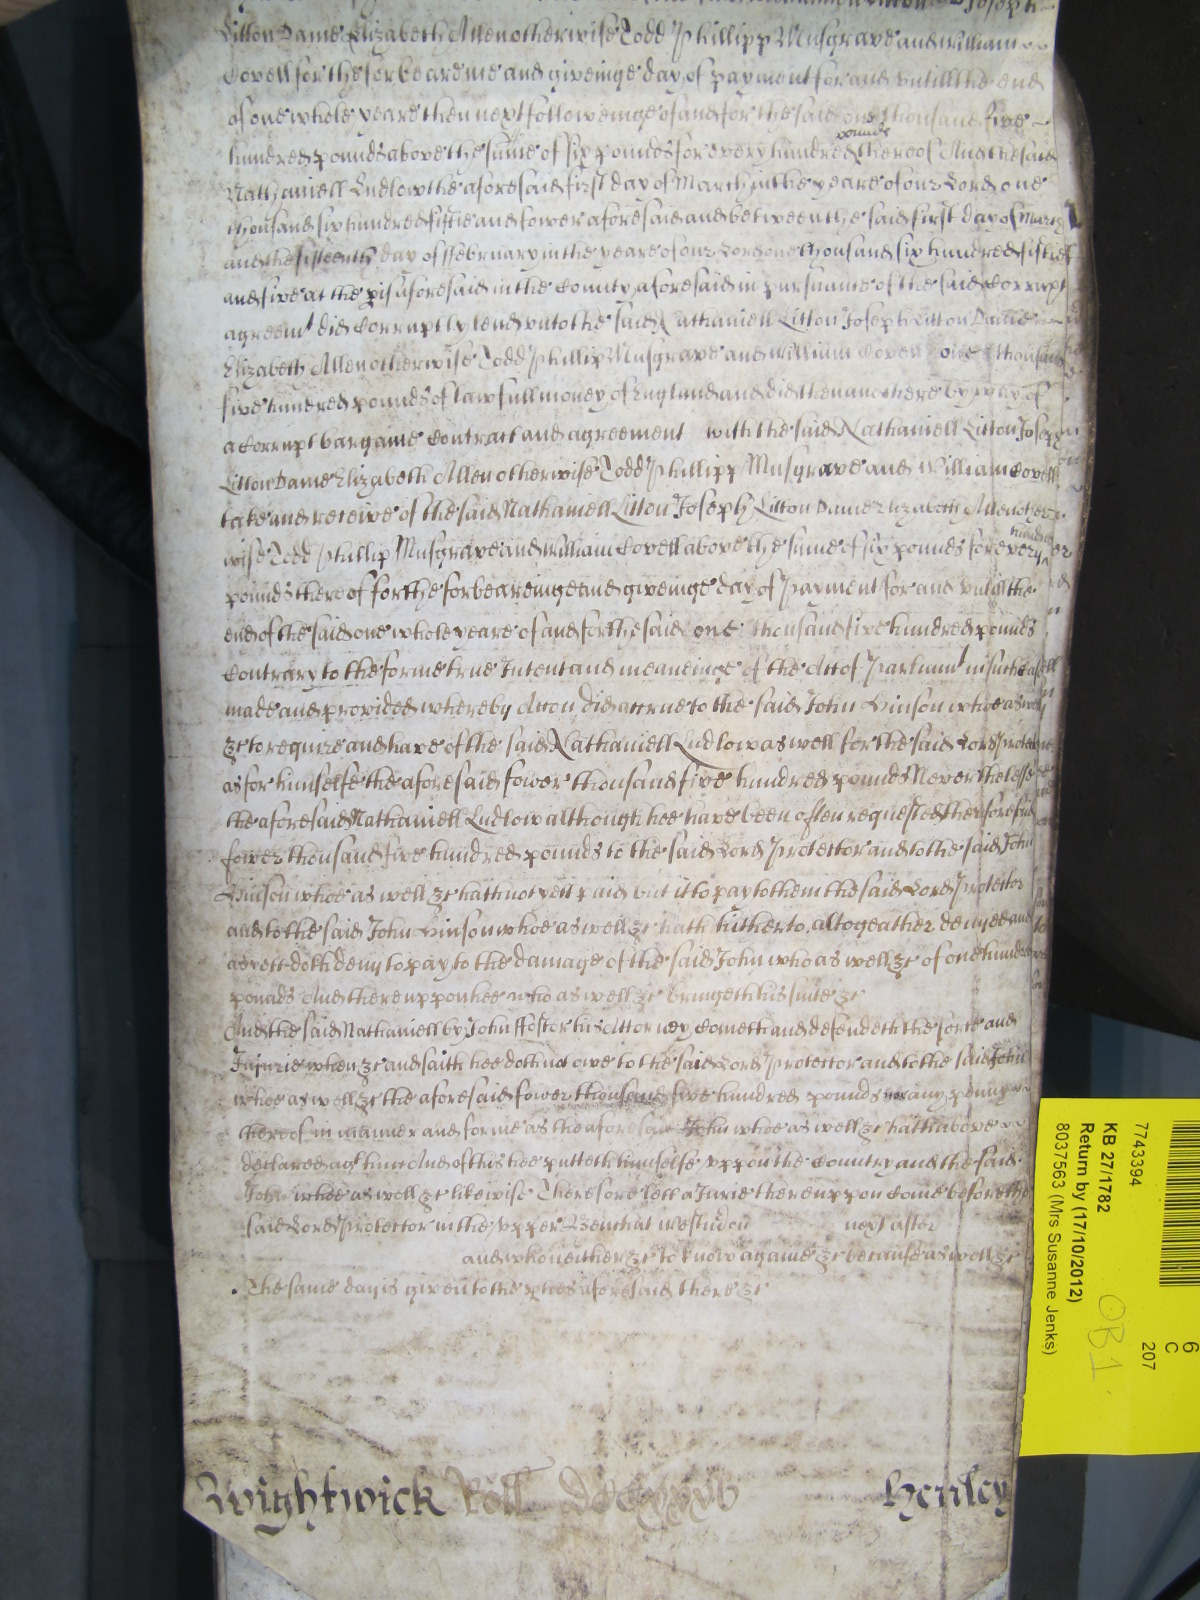 Litton Dame Elizabeth Allen otherwise Todd Phillipp Musgrave and William
Covell for the forbeareinge and giveinge day of payment for and untill the end
of one whole yeare then next followeinge of and for the said one thousand five
hundred pounds above the sume of six pounds for every hundred pounds thereof And the said
Nathaniell Ludlow the aforesaid first day of March in the yeare of our Lord one
thousand six hundred fiftie and fower aforesaid and betweene the said first day of March
and the fifteenth day of ffebruary in the yeare of our Lord one thousand six hundred fiftie
and five at the pish aforesaid in the County aforesaid in pursuance of the said Corrupt
agreemt did Corruptly lend unto the said Nathaniell Litton Joseph Litton Dame
Elizabeth Allen otherwise Todd Phillip Musgrave and William Covell one thousand
five hundred pounds of lawfull money of England and did then and there by way of
a Corrupt bargaine Contract and agreement with the said Nathaniell Litton Joseph
Litton Dame Elizabeth Allen otherwise Todd Phillipp Musgrave and William Covell
take and receive of the said Nathaniell Litton Joseph Litton Dame Elizabeth Allen other
wise Todd Phillip Musgrave and William Covell above the sume of six pounds for every hundred
pounds thereof for the forbeareinge and giveinge day of Payment for and untill the
end of the said one whole yeare of and for the said one thousand five hundred pounds
Contrary to the forme true Intent and meaneinge of the Act of Parliamt in such case
made and provided whereby Accon did accrue to the said John Hinson whoe as well
&c to require and have of the said Nathaniell Ludlow as well for the said Lord Protector
as for himselfe the aforesaid fower thousand five hundred pounds Neverthelesse
the aforesaid Nathaniell Ludlow although hee have been often requested the aforesaid
fower thousand five hundred pounds to the said Lord Protector and to the said John
Hinson whoe as well &c hath not yett paid but it to pay to them the said Lord Protector
and to the said John Hinson whoe as well &c hath hitherto altogeather denyed and
as yett doth deny to pay to the damage of the said John who as well &c of one hundred
pounds And thereuppon hee who as well &c bringeth his suite &c
And the said Nathaniell by John ffoster his Attorney Cometh and defendeth the force and
Injurie when &c and saith hee doth not owe to the said Lord Protector and to the said John
whoe as well &c the aforesaid fower thousand five hundred pounds nor any penny
thereof in manner and forme as the aforesaid John whoe as well &c hath above
declared agt him And of this hee putteth himselfe uppon the Country and the said
John whoe as well &c likewise Therefore lett a Jurie thereuppon Come before the
said Lord Protector in the upper Bench at Westm̃ on next after
and who neither &c to know againe &c because as well &c
The same day is given to the pties aforesaid there &c
Wightwick Roll Henley
7743394
KB 27/1782
Return by (17/10/2012)
8037563 (Mrs Susanne Jenks)
OB 1
6
C
207